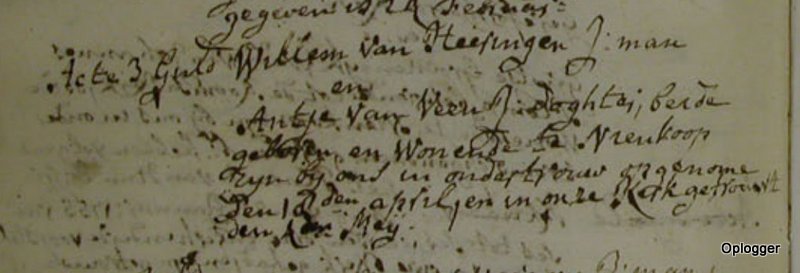 gegeven
Acte 3 Guld Willem van Heesingen J: man
en
Antje van Veen J: doghter, beide
geboren en Wonende te Nieukoop
zyn by ons in ondertrouw opgenome
den 18den april, en in onze Kerk getrouwt
den Mey.
J: man
Oplogger